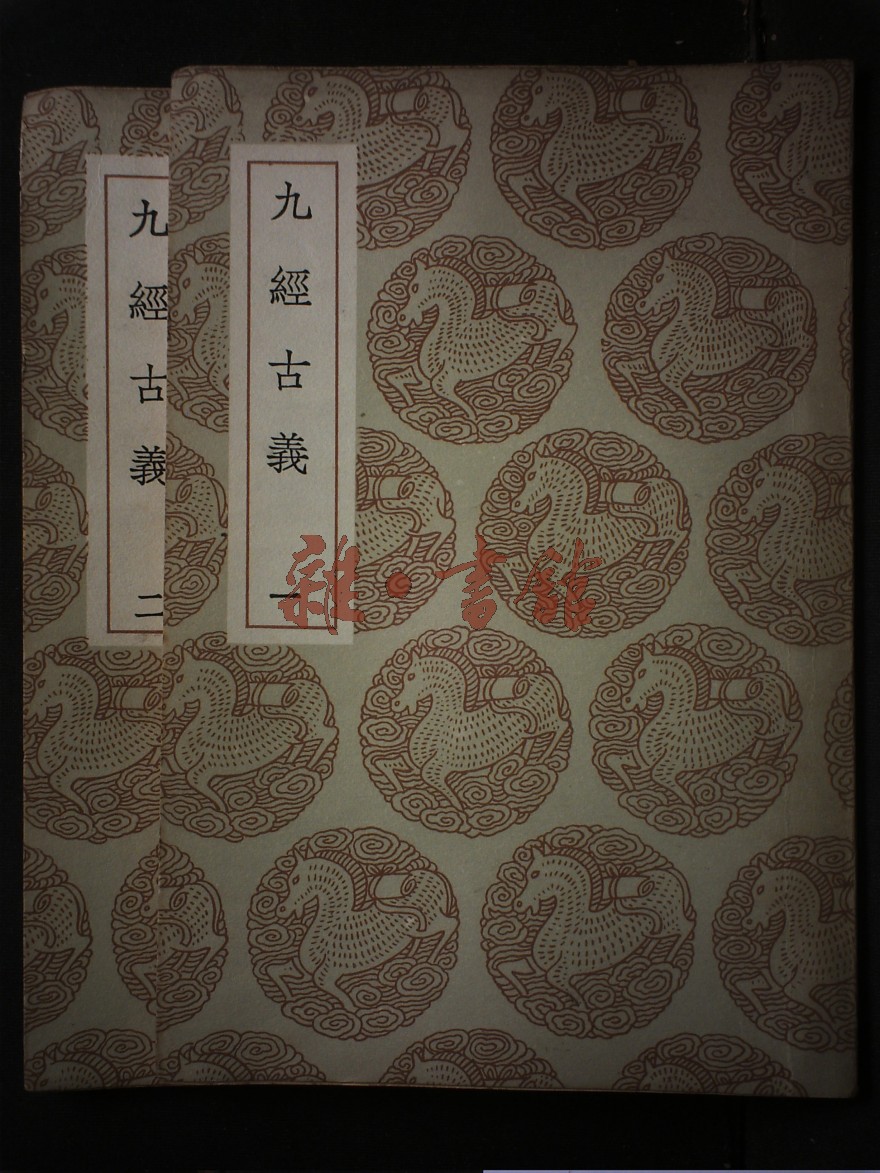 九經古義 一
九經古義 二
雜·書館